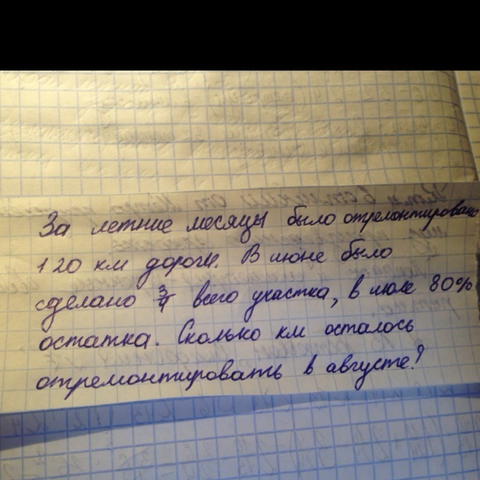 За летние месяцы было отремонтировано
120 км дороги. В июне было
сделано 3/4 всего участка, в июле 80%
остатка. Сколько км осталось
отремонтировать в августе?